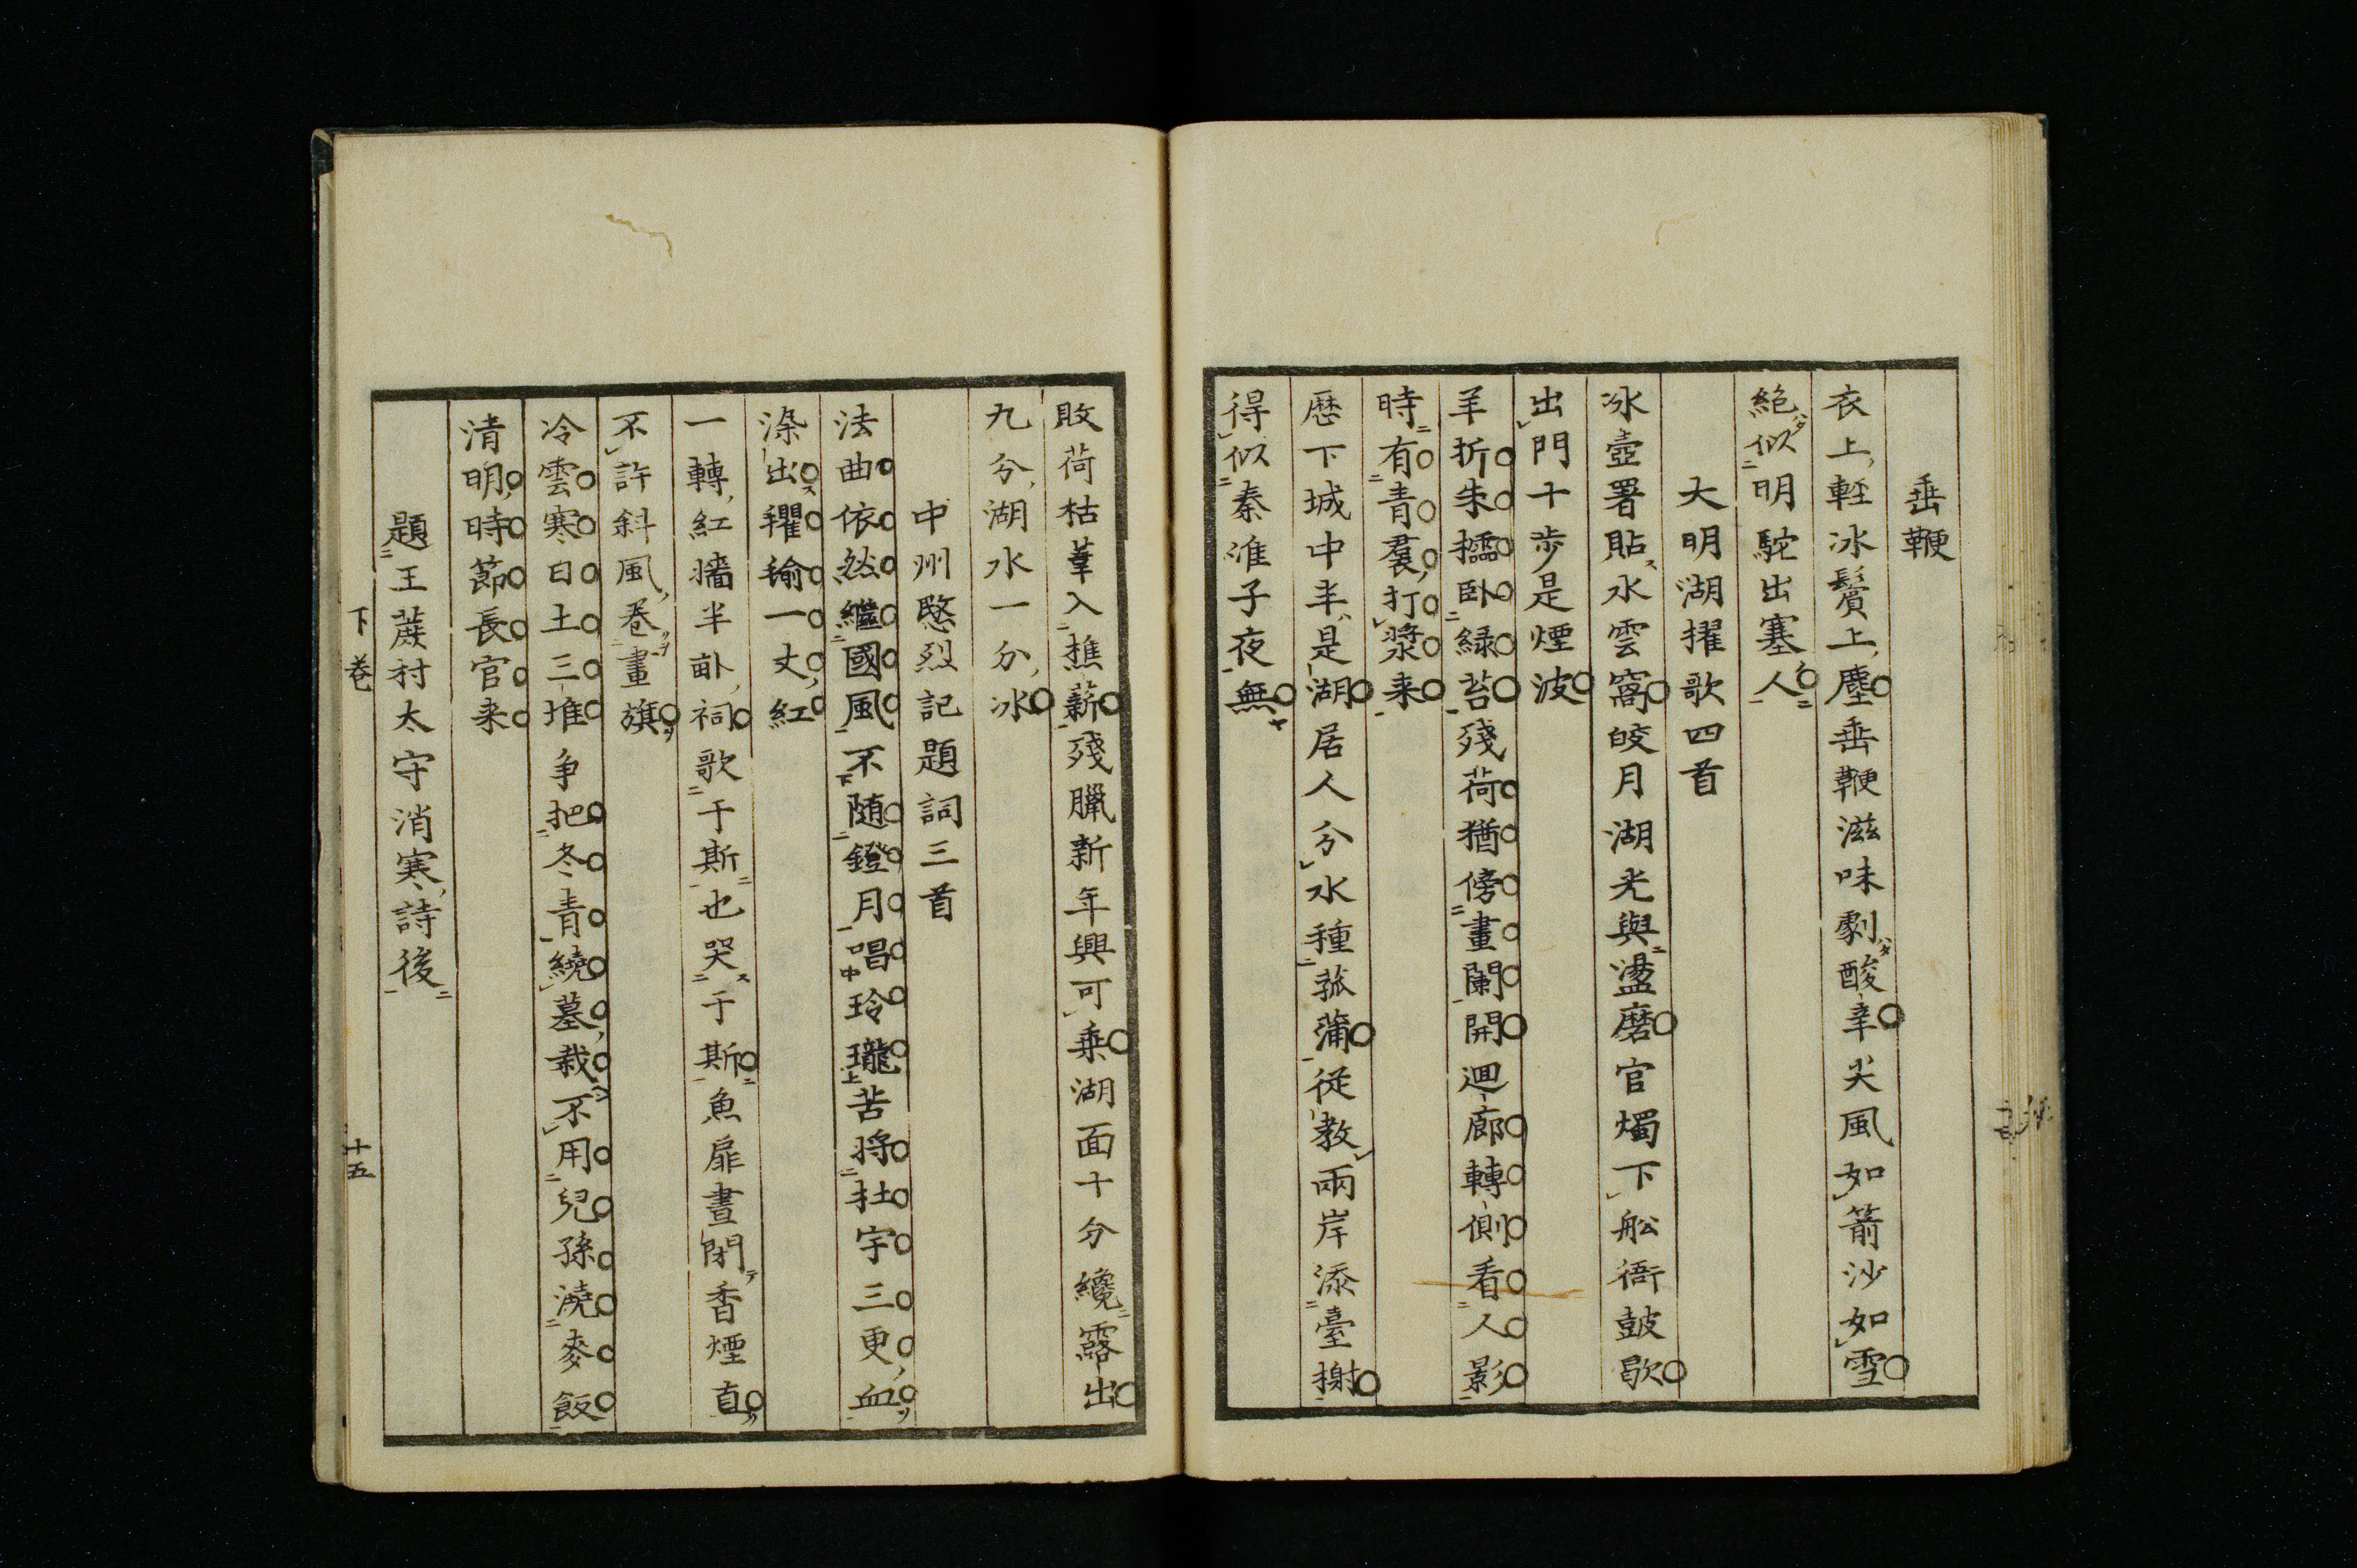 垂鞭
衣上輕冰鬢上塵垂鞭滋味劇酸辛尖風如箭沙如雪
絶似明駝出塞人
大明湖擢歌四首
冰壺署貼水雲窩皎月湖光與盪磨官燭下船衙鼓歇
出門十步是煙波
羊折朱擩卧緑苔殘荷猶傍畫闌開迴廊轉側看人影
時有青裠打漿来
歴下城中半是湖居人分水種菰蒲従教兩岸添臺榭
得似秦淮子夜無
敗荷枯葦入樵薪殘臘新年興可乗湖面十分纔露出
九分湖水一分冰
中州愍烈記題詞三首
法曲依然繼國風不随鐙月唱玲瓏苦将杜宇三更血
染出氍毹一丈紅
一轉紅牆半畝祠歌于斯也哭于斯魚扉晝閉香煙直
不許斜風巻畫旗
冷雲寒日土三堆争把冬青繞墓栽不用兒孫澆麥飯
清明時節長官来
題王蔗村太守消寒詩後
下巻
十五